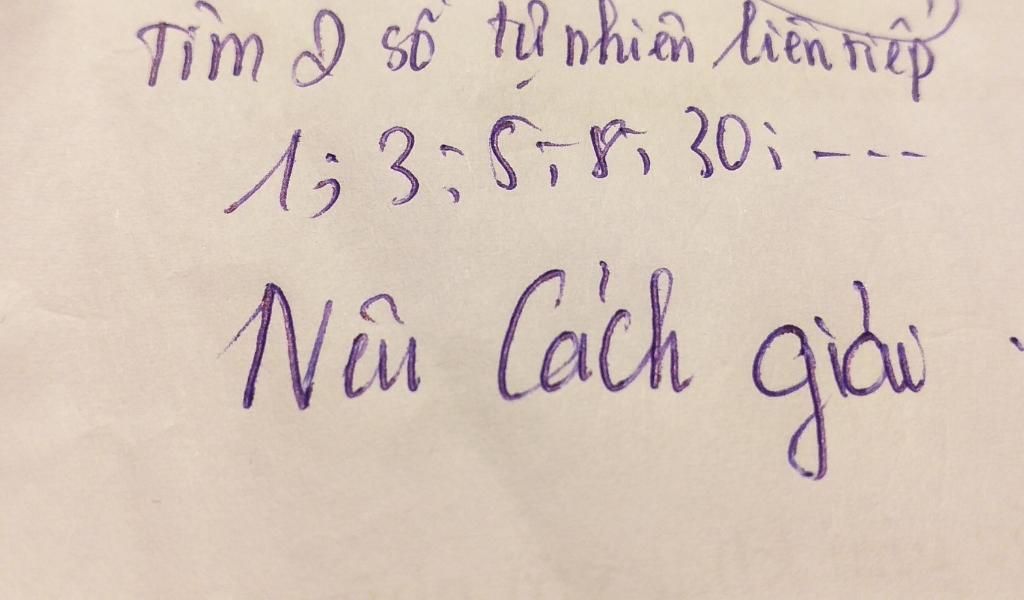 Tìm 2 số tự nhiên liên tiếp
1; 3; 5; 8; 30; ---
Nêu Cách giải